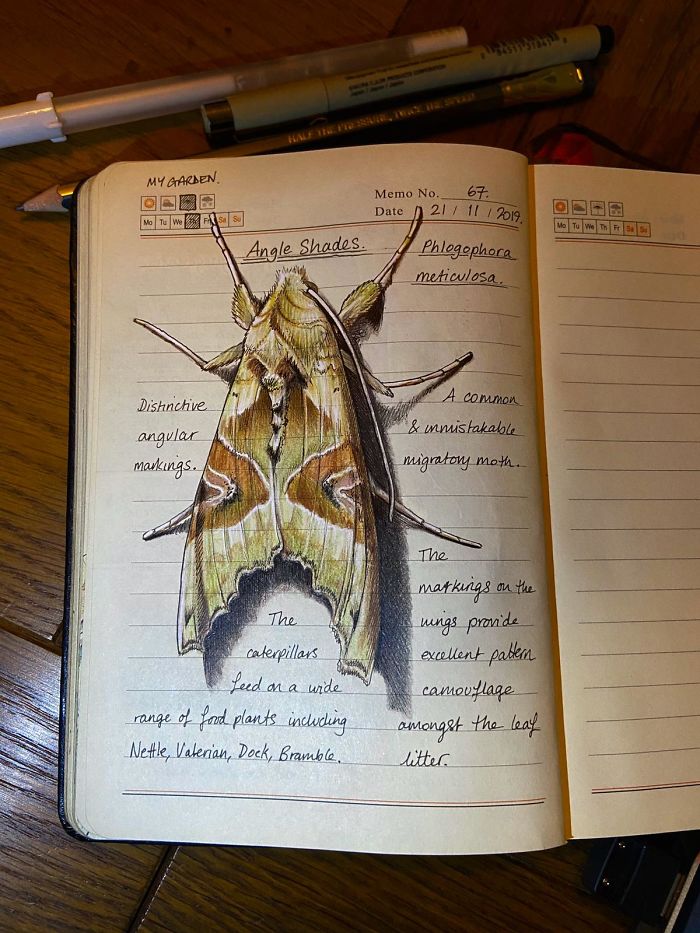 SAKURA COLOR PRODUCTS CORPORATION
Japan / Japon / Japan
HALF THE PRESSURE, TWICE THE SPEED
MY GARDEN.
Memo No. 67.
Mo Tu We Th Fr Sa Su
Date 21 / 11 / 2019.
Angle Shades.
Phlogophora
meticulosa.
Distinctive
angular
markings.
A common
& unmistakable
migratory moth.
The
markings on the
wings provide
excellent pattern
camouflage
amongst the leaf
litter.
The
caterpillars
feed on a wide
range of food plants including
Nettle, Valerian, Dock, Bramble.
Mo Tu We Th Fr Sa Su